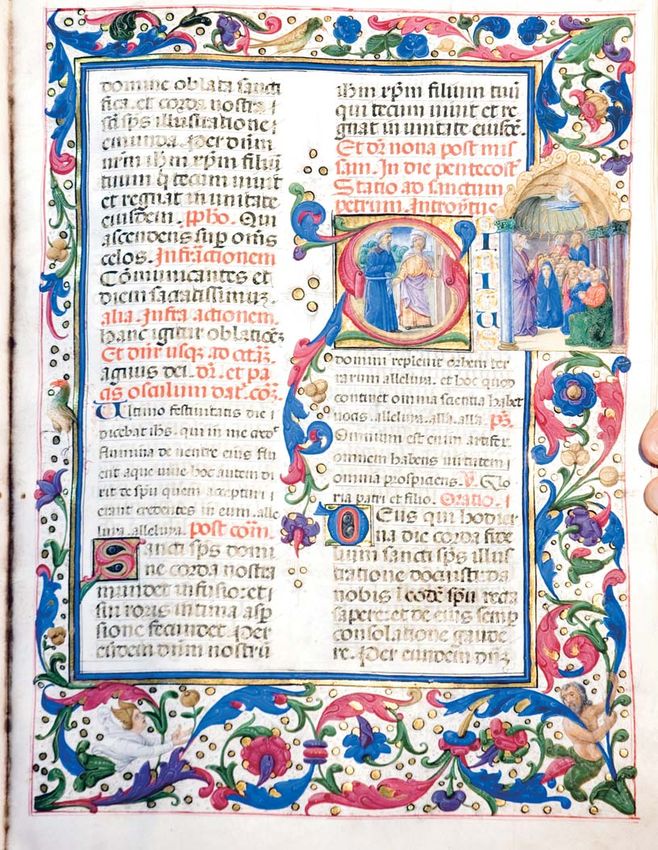 domine oblata sancti
fica. et corda nostra i
sc̄i sp̄s illustratione i
emunda. Per dūm
nr̄m ih̄m xp̄m filiuʒ
tuum q̄ tecum uiuit
et regnat in unitate
eiusdem. ppħo. Qui
ascendens sup om̄s
celos. Infra actionem
Cōmunicantes et
diem sacratissimuʒ.
alia. Infra actionem.
hanc igitur oblationēʒ
Et dūr usqʒ ad oct.
agnus dei. dr̄. et pa
cis osculum dat̄. cōʒ.
Ultimo festiuitatis die i
dicebat ih̄s. qui in me cred
flumina de uentre eius flu
ent aque uiue hoc autem di
xit de sp̄u quem accepturi i
erant credentes in eum. alle
luya. alleluya. post com̄.
Sancti sp̄s domi
ne corda nostra
mundet infusio: et i
sui roris intima asp
sione fecundet. Per
eiusdem dūm nostrū
ih̄m xp̄m filium tuū
qui tecum uiuit et re
gnat in unitate eiusdē.
Et dr̄ nona post mis
sam. In die pentecost̄
Statio ad sanctum
petrum. Introytus
SPIRITUS
domini repleuit orbem ter
rarum alleluya. et hoc quod
continet omnia scientiā habet
uocis. alleluya. alla. alla. p̄s.
Omnium est enim artifex
omnem habens uirtutem i
omnia prospiciens. V. Glo
ria patri et filio. Oratio. i
DEus qui hodier
na die corda fide
lium sancti sp̄s illus
tratione docuisti: da
nobis i eodē sp̄u recta
sapere: et de eius semp
consolatione gaude
re. Per eiusdem dn̄ʒ